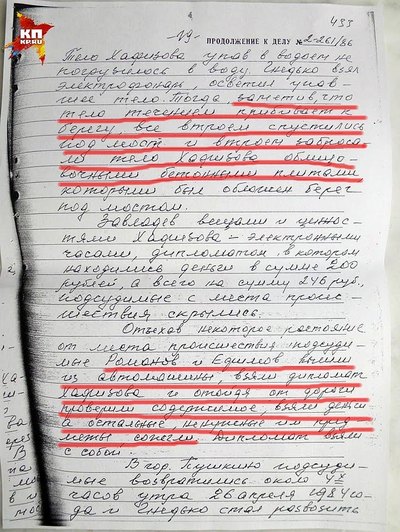 КП
KP.RU
433
-19-
ПРОДОЛЖЕНИЕ К ДЕЛУ № 2-261/86
Тело Хафизова упав в водоем не
погрузилось в воду. Гнедько взял
электрофонарь, осветил упав-
шее тело. Тогда, заметив, что
тело течением прибивает к
берегу, все втроем спустились
под мост и втроем заброса-
ли тело Хафизова облицо-
вочными бетонными плитами
которыми был обложен берег
под мостом.
Завладев вещами и ценнос-
тями Хафизова – электронными
часами, дипломатом, в котором
находились деньги в сумме 200
рублей, а всего на сумму 246 руб.,
подсудимые с места проис-
шествия скрылись.
Отъехав некоторое расстояние
от места происшествия подсуди-
мые Романов и Едимов вышли
из автомашины, взяли дипломат
Хафизова и отойдя от дороги
проверили содержимое, взяли деньги
а остальные, ненужные им пред-
меты, сожгли. Дипломат взяли
с собой.
В гор. Пушкино подсуди-
мые возвратились около 4х
часов утра 26 апреля 1984 го-
да и Гнедько стал развозить